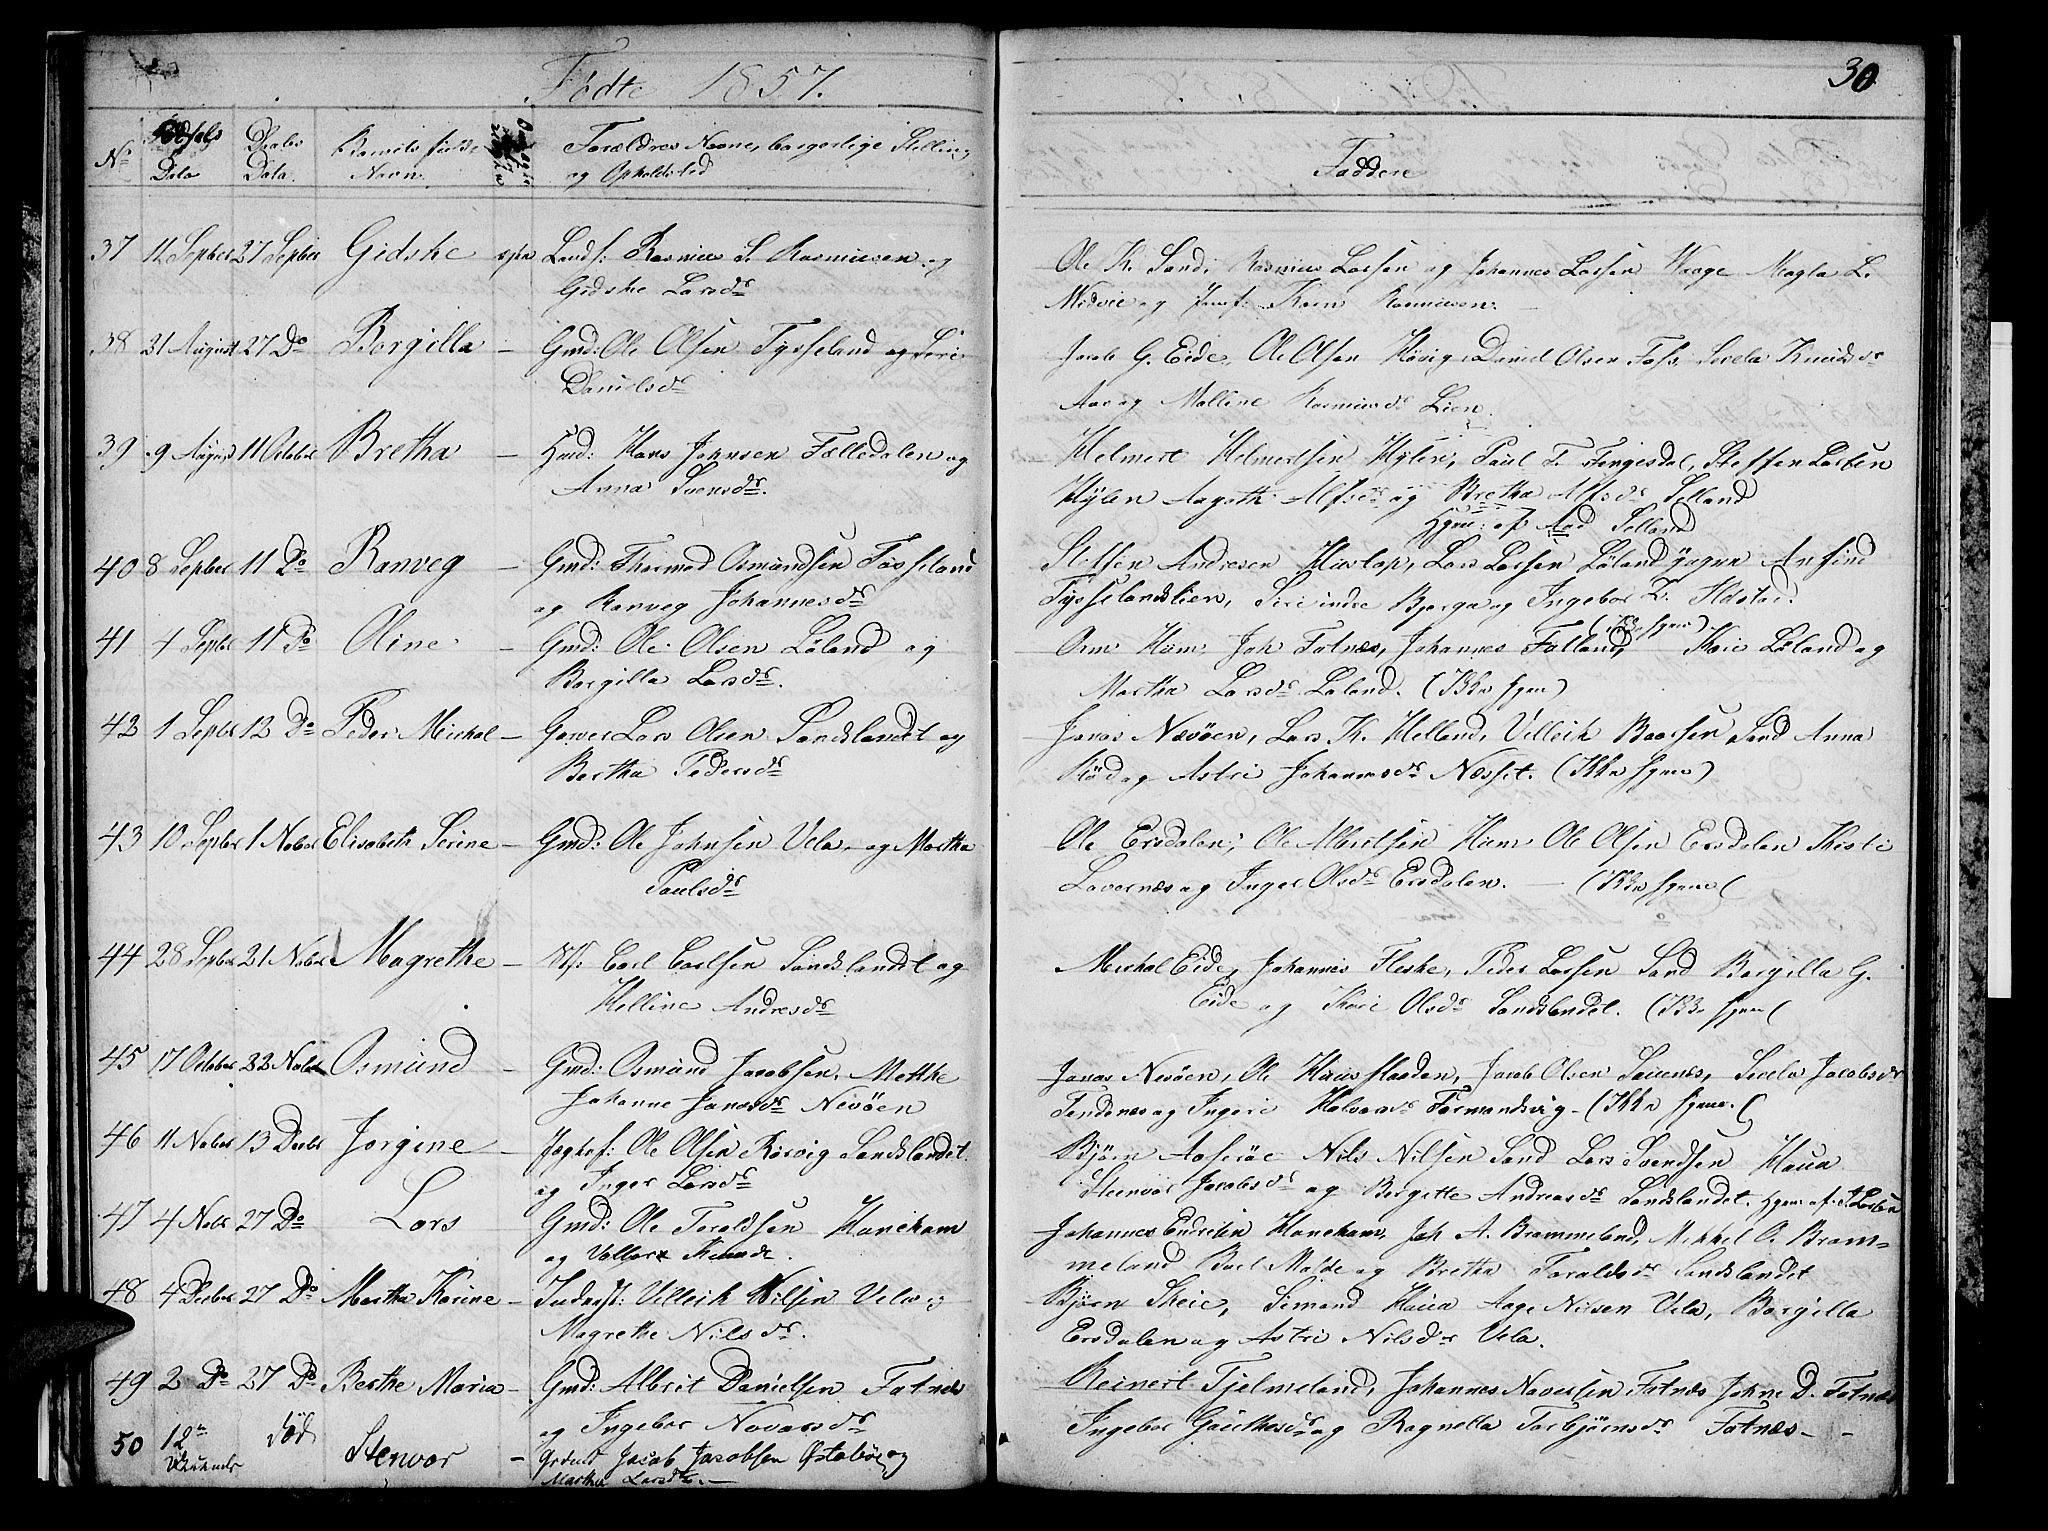 Fødte 1857.
30
No
Fødsels Data
Daabs Data.
Barnets fulde Navn.
Forældres Navne, borgerlige Stilling og Opholdsted
Faddere
37 11 Septber 27 Septber Gidske Landh: Rasmus S. Rasmusen og
Gidske Larsdr
Ole K. Sand, Rasmus Larsen og Johannes Larsen Waage Magla L.
Midvie og Jomf: Karn Rasmusen.
38 31 August 27 Do Borgilla — Gmd: Ole Olsen Tysseland og Siri
Danielsdr
Jacob G. Eide, Ole Olsen Høivig, Daniel Olsen Foss, Sivela Knudsdr
Aas og Malline Rasmusdr Lien.
39 9 August 11 October Bretha — Hmd: Hans Johnsen Fælledalen og
Anna Svensdr.
Helmert Helmertsen Hylen, Paul T. Tengesdal, Steffen Larsen
Hylen Aagoth Alfsdr og Bretha Alfsdr Selland
Hgm: af Aad Selland
40 8 Septber 11 Do Ranveg — Gmd: Thormod Osmundsen Tysseland
og Ranveg Johannesdr
Steffen Andresen Hustoft, Lars Larsen Løland yngre Anfind
Tysselandslien, Siri indre Bjerga og Ingebor L. Ilstad.
41 4 Septbr 11 Do Oline — Gmd: Ole Olsen Løland og
Borgilla Larsdr.
Orm Ham Joh Fatnæs, Johannes Falland, (Ikke hgm) Kari Løland og
Martha Larsdr Løland. (Ikke hgm)
42 1 Septbr 12 Do Peder Michal — Garver Lars Olsen Sandslandet og
Bertha Pedersdr
Jonas Nævøen, Lars K. Helland, Villeik Baarsen Sand Anna
Rød og Astri Johannesdr Næsset. (Ikke hgm)
43 10 Septbr 1 Nober Elisabeth Serine — Gmd: Ole Johnsen Vela og Martha
Paulsdr
Ole Ersdalen, Ole Albretsen Ham Ole Olsen Ersdalen Kisti
Lavernæs og Inger Olsdr Ersdalen. — (Ikke hgm)
44 28 Septber 21 Nober Magrethe — Carl Carlsen Sandslandet og
Helline Andresdr
Michal Eide, Johannes Fleske, Peder Larsen Sand Borgilla G.
Eide og Kari Olsdr Sandslandet. (Ikke hgm)
45 17 October 22 Nober Osmund — Gmd: Osmund Jacobsen, Methe
Johanne Jonasdr Nevøen
Jonas Nevøen, Ole Hausstaden, Jacob Olsen Saunes, Sivela Jacobsdr
Tendenæs og Ingeri Halvorsdr Tormandsvig — (Ikke hgm.)
46 11 Nober 13 Decbr Jorgine — Jæghsf: Ole Olsen Rørvig Sandslandet.
og Inger Larsdr
Bjørn Aaserøe Nils Nilsen Sand Lars Svendsen Haua
Steenvor Jacobsdr og Birgitte Andreasdr Sandslandet. Hgm: af L Larsen
47 4 Nobr 27 Do Lars Gmd: Ole Taraldsen Haneham
og Valbor Knudsdr.
Johannes Endresen Haneham, Joh A. Brommeland, Mikkel O. Brom-
meland Boel Molde og Bretha Taraldsdr Sandslandet
48 4 Decber 27 Do Martha Karine — Inderst: Villeik Nilsen Vela og
Magrethe Nilsdr.
Bjørn Skeie, Simond Haua Aage Nilsen Vela, Borgilla
Ersdalen og Astri Nilsdr Vela.
49 2 Do 27 Do Berthe Maria — Gmd: Albrit Danielsen Fatnæs
og Ingebor Novarsdr
Reinert Tjelmeland, Johannes Naversen Fatnæs John D. Fatnæs
Ingebor Gauthesdr og Ragnilla Torbjørnsdr Fatnæs —
50 12te død Stenvor — Grdmd Jacob Jacobsen Østebøe og
Martha Larsdtr. —